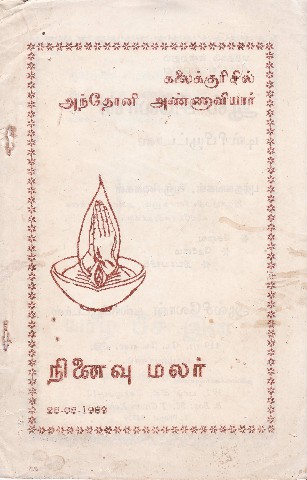 கலைக்குரிசில்
அந்தோனி அண்ணாவியார்
நினைவு மலர்
28-08-1989